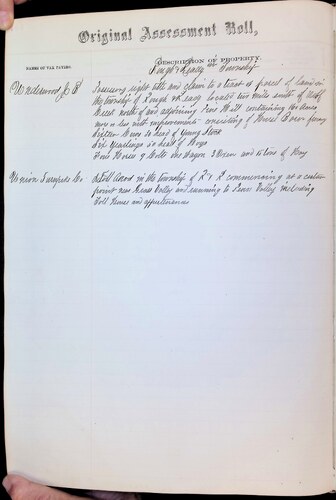 Original Assessment Roll,
NAMES OF TAX PAYERS.
DESCRIPTION OF PROPERTY.
Rough & Ready Township
Underwood J B
Possessory right title and claim to a tract or parcel of land in
the township of Rough & Ready located two miles south of
and adjoining Hill containing 160 acres
more or less with improvements consisting of House Barn fencing
Sixteen Cows 10 head of young Stock
Six Yearlings 50 head of Hogs
One Horse 4 Colts one Wagon 3 Oxen and 15 tons of Hay
Union Turnpike Co
A toll Road in the township of R & R commencing at a certain
point near Grass Valley and running to Valley including
Toll House and appurtenances